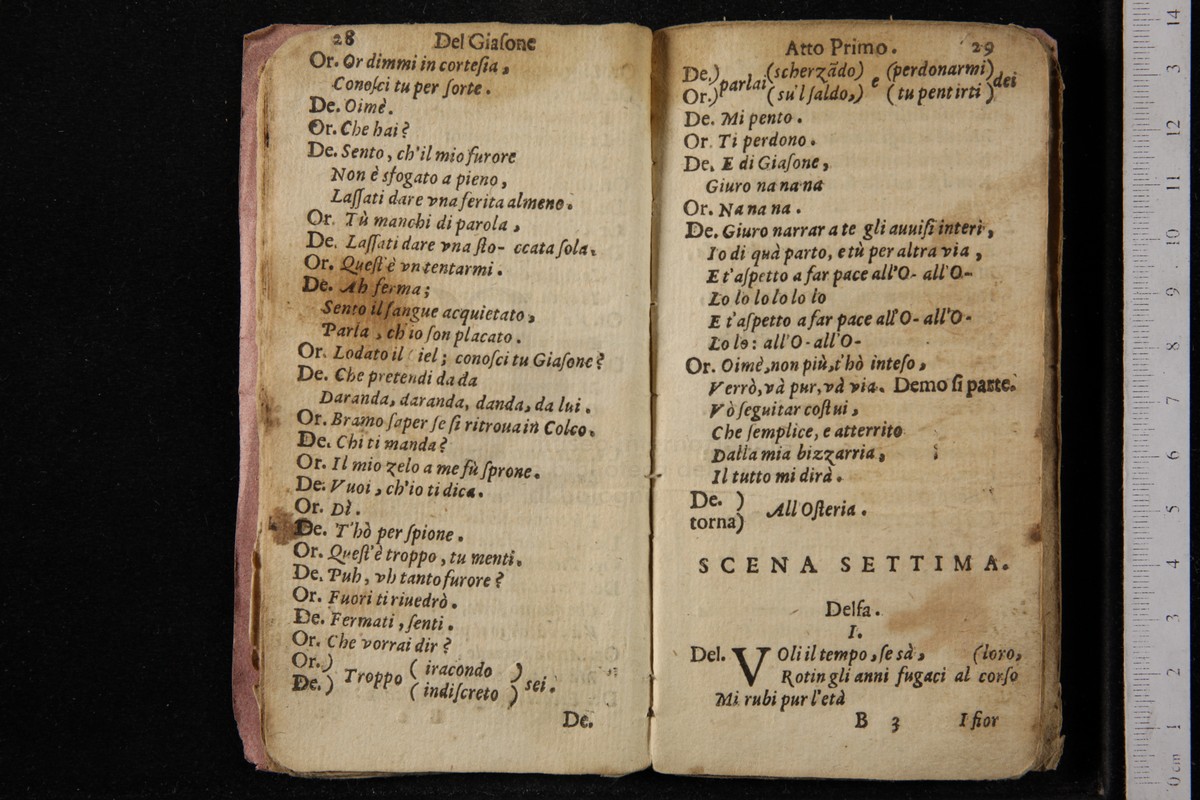 28 Del Giaſone
Or. Or dimmi in corteſia,
Conoſci tu per ſorte.
De. Oimè.
Or. Che hai?
De. Sento, ch'il mio furore
Non è sfogato a pieno,
Laſſati dare vna ferita almeno.
Or. Tù manchi di parola,
De. Laſſati dare vna ſto- ccata ſola.
Or. Queſt'è vn tentarmi.
De. Ah ferma;
Sento il ſangue acquietato,
Parla, ch'io ſon placato.
Or. Lodato il iel; conoſci tu Giaſone?
De. Che pretendi da da
Daranda, daranda, danda, da lui.
Or. Bramo ſaper ſe ſi ritroua in Colco.
De. Chi ti manda?
Or. Il mio zelo a me fù ſprone.
De. Vuoi, ch'io ti dica.
Or. Dì.
De. T'hò per ſpione.
Or. Queſt'è troppo, tu menti.
De. Puh, vh tanto furore?
Or. Fuori ti riuedrò.
De. Fermati, ſenti.
Or. Che vorrai dir?
Or.) Troppo ( iracondo ) ſei.
De.) ( indiſcreto )
De.
Atto Primo. 29
De.) parlai (scherzãdo) e (perdonarmi) dei
Or.) (su'l ſaldo,) (tu pentirti)
De. Mi pento.
Or. Ti perdono.
De. E di Giaſone,
Giuro na na na
Or. Na na na.
De. Giuro narrar a te gli auuiſi interi,
Io di quà parto, e tù per altra via,
E t'aſpetto a far pace all'O- all'O-
Lo lo lo lo lo lo
E t'aſpetto a far pace all'O- all'O-
Lo lo: all'O- all'O-
Or. Oimè, non più, t'hò inteſo,
Verrò, và pur, và via. Demo ſi parte.
Vò ſeguitar coſtui,
Che ſemplice, e atterrito
Dalla mia bizzarria,
Il tutto mi dirà.
De. )
torna) All'Oſteria.
SCENA SETTIMA.
Delfa.
I.
Del. VOli il tempo, ſe sà, (loro,
Rotin gli anni fugaci al corſo
Mi rubi pur l'età
B 3 I fior
14
13
12
11
10
9
8
7
6
5
4
3
2
1
0 cm